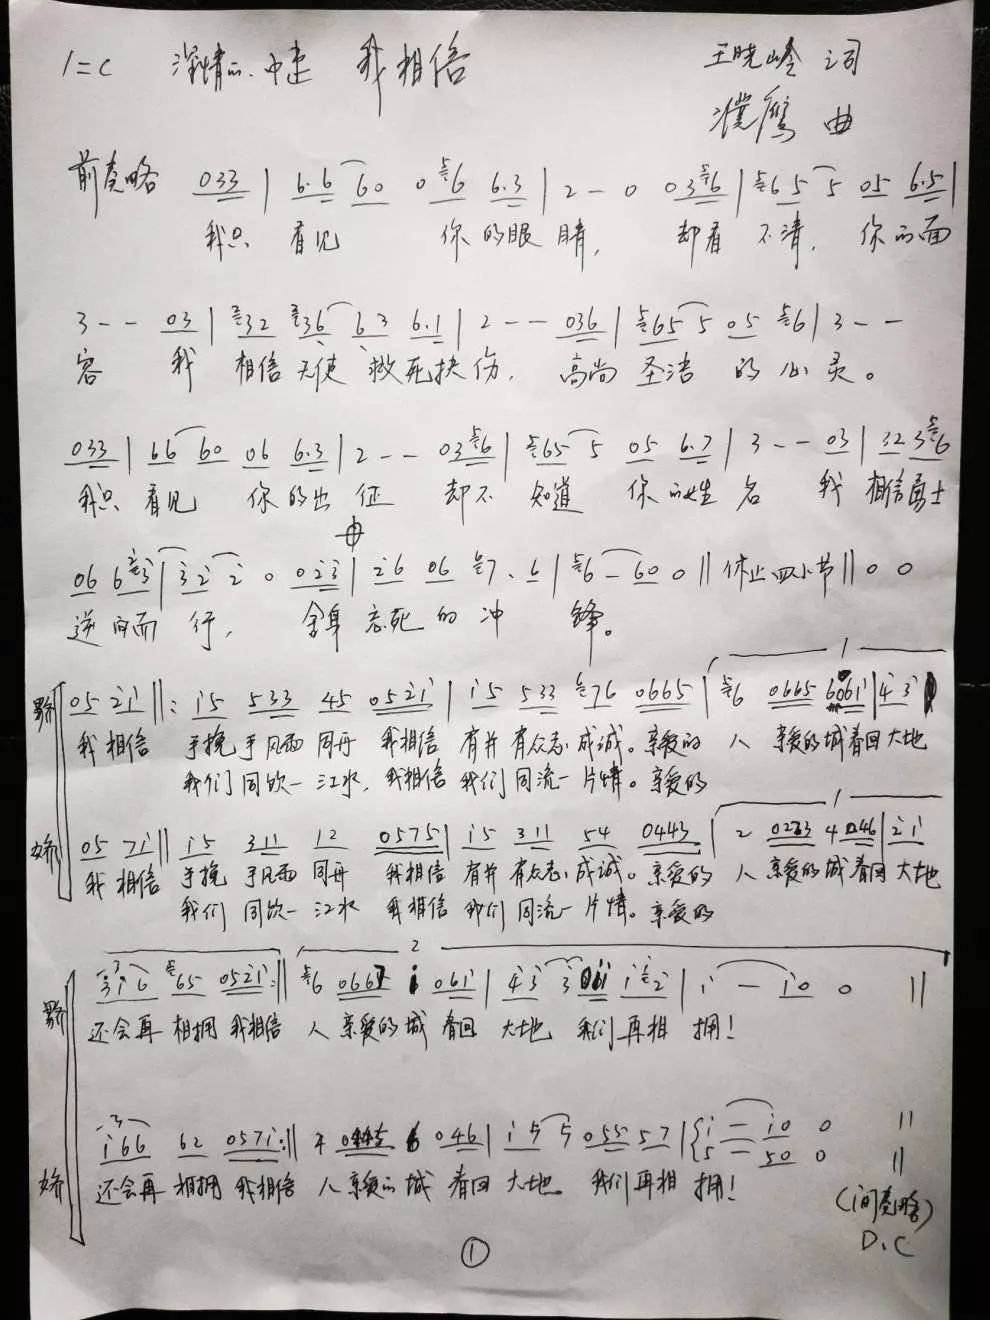 1=C 深情的 中速 我相信 王晓岭 词
濮 曲
前奏略 033 | 6·6 60 0 56 6·3 | 2 - 0 036 | 565 5 05 6·5 |
我只 看见 你的眼 睛, 却看 不清, 你的面
3 - - 03 | 32 36 63 6·1 | 2 - - 036 | 565 5 05 56 | 3 - -
容 我 相信 天使 救死扶伤, 高尚 圣洁 的 心灵。
033 | 66 60 06 6·3 | 2 - - 0356 | 565 5 05 6·7 | 3 - - 03 | 32 356
我只 看见 你的出 征 却不 知道 你的姓 名 我 相信勇士
06 63 | 32 2 0 023 | 26 06 7·6 | 56 - 60 0 || 休止四小节 || 0 0
逆向而 行, 舍身 忘死的 冲 锋。
1
男 05 21 ||: 15 533 45 0521 | 15 533 76 0665 | 56 0665 6061 | 43
我 相信 手挽 手风雨 同舟 我相信 有并 有众志 成诚。 亲爱的 人 亲爱的城看回大地
我们 同饮一 江水, 我相信 我们 同流一 片情。 亲爱的
1
女 05 71 || 15 311 12 0575 | 15 311 54 0443 | 2 0223 4 046 | 21
我 相信 手挽 手风雨 同舟 我相信 有并 有众志 成诚。 亲爱的 人 亲爱的城看回 大地
我们 同饮一 江水 我相信 我们 同流一 片情。 亲爱的
2
男 316 565 0521 :|| 56 0667 1 061 | 43 3 011 12 | 1 - 10 0 ||
还会再 相拥 我相信 人 亲爱的 城 看回 大地 我们再相 拥!
女 166 62 0571 :|| 4 0445 6 046 | 15 5 055 57 | { 1 - 10 0 ||
5 - 50 0 ||
还会再 相拥 我相信 人 亲爱的城 看回 大地 我们再相 拥!
(间奏略)
D.C
①